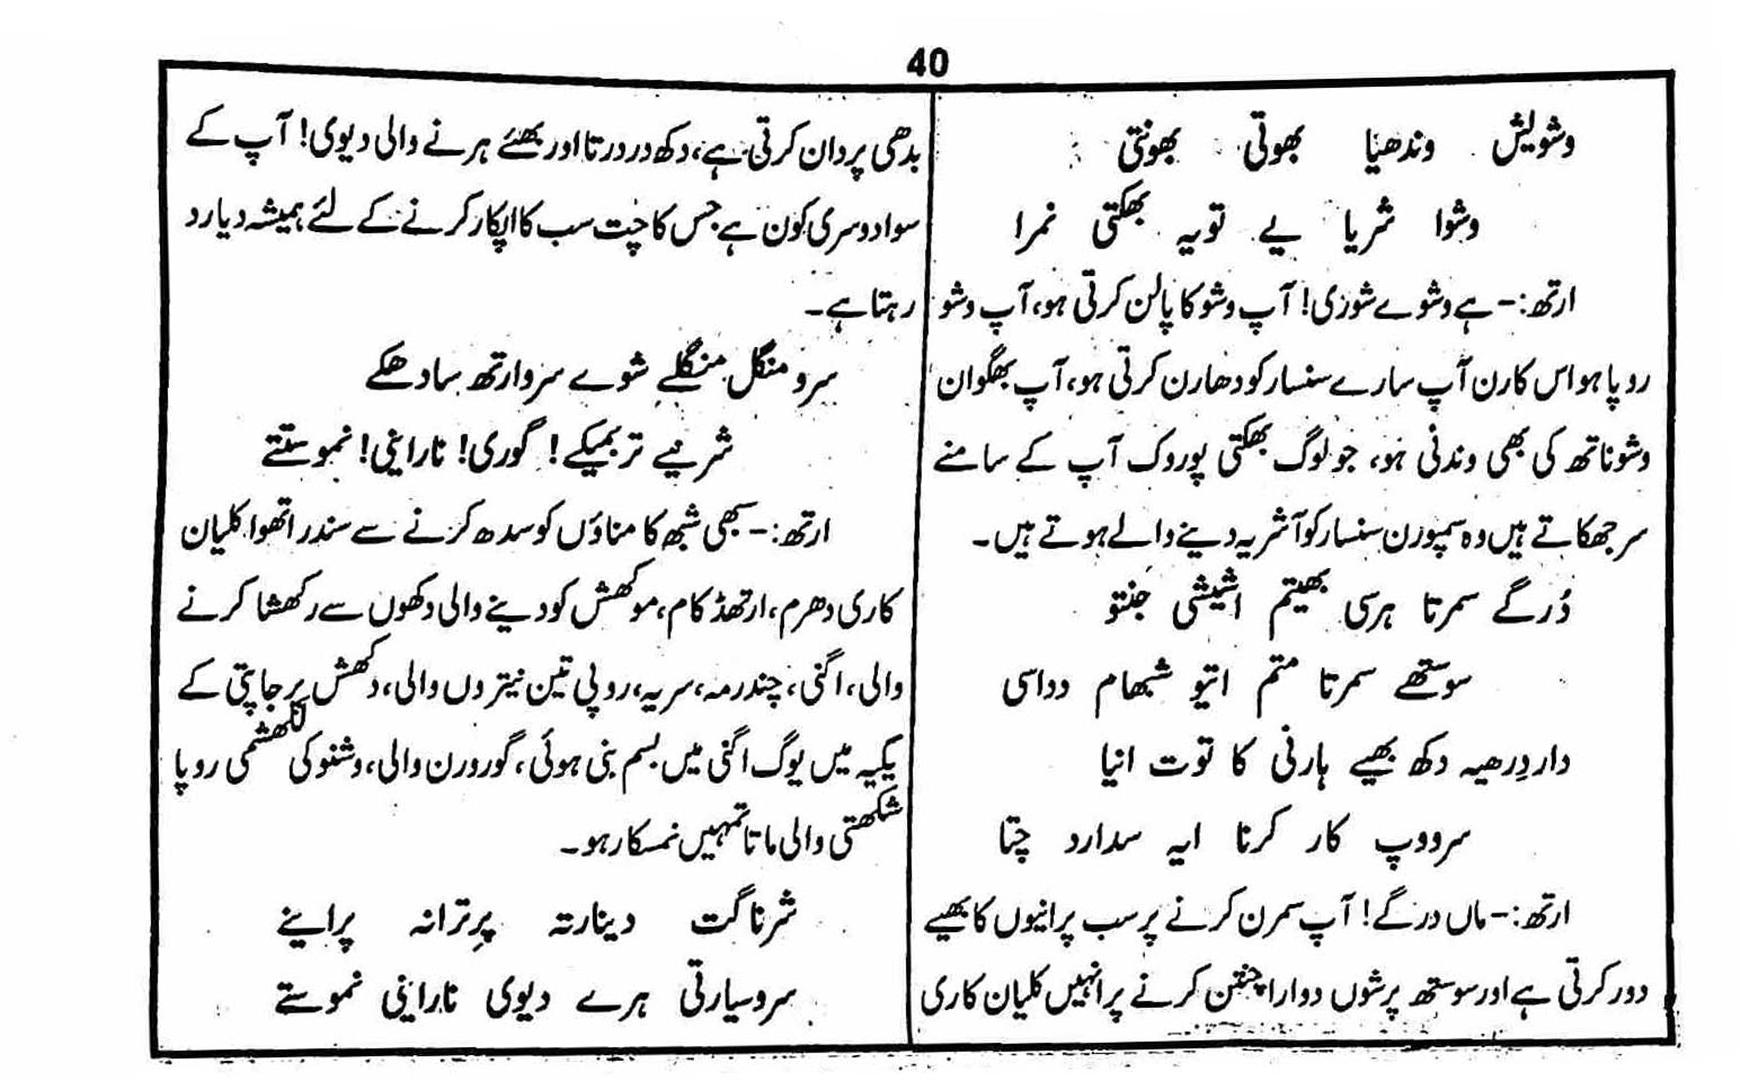 40
وشولیش وندھیا بھوتی بھونتی
وشوا شریا یے تویہ بھکتی نمرا
ارتھ:- ہے وشوے شوری! آپ وشو کا پالن کرتی ہو، آپ وشو
روپا ہو اس کارن آپ سارے سنسار کو دھارن کرتی ہو، آپ بھگوان
وشوناتھ کی بھی وندنی ہو، جو لوگ بھکتی پوروک آپ کے سامنے
سر جھکاتے ہیں وہ سمپورن سنسار کو آشریہ دینے والے ہوتے ہیں۔
دُرگے سمرتا ہرسی بھیتم اشیشی جنتو
سوستھے سمرتا متم اتیو شبھام دداسی
داردِرھیہ دکھ بھیے ہارنی کا توت انیا
سرووپ کار کرنا ایہ سدارد چتا
ارتھ:- ماں درگے! آپ سمرن کرنے پر سب پرانیوں کا بھیے
دور کرتی ہے اور سوستھ پرشوں دوارا چنتن کرنے پر انہیں کلیان کاری
بدھی پردان کرتی ہے، دکھ دردرتا اور بھئے ہرنے والی دیوی! آپ کے
سوا دوسری کون ہے جس کا چت سب کا اپکار کرنے کے لئے ہمیشہ دیارد
رہتا ہے۔
سرو منگل منگلے شوے سروارتھ سادھکے
شرنیے تربمیکے! گوری! نارائنی! نموستتے
ارتھ:- سبھی شبھ کامناؤں کو سدھ کرنے سے سندر اتھوا کلیان
کاری دھرم، ارتھڈ کام، موکھش کو دینے والی دکھوں سے رکھشا کرنے
والی، اگنی، چندرمہ، سریہ، روپی تین نیتروں والی، دکھش پرجاپتی کے
یکیہ میں یوگ اگنی میں بسم بنی ہوئی، گورورن والی، وشنو کی لکھشمی روپا
شکھتی والی ماتا تمہیں نمسکار ہو۔
شرناگت دینارتہ پرِترانہ پراینے
سروسیارتی ہرے دیوی نارائنی نموستے